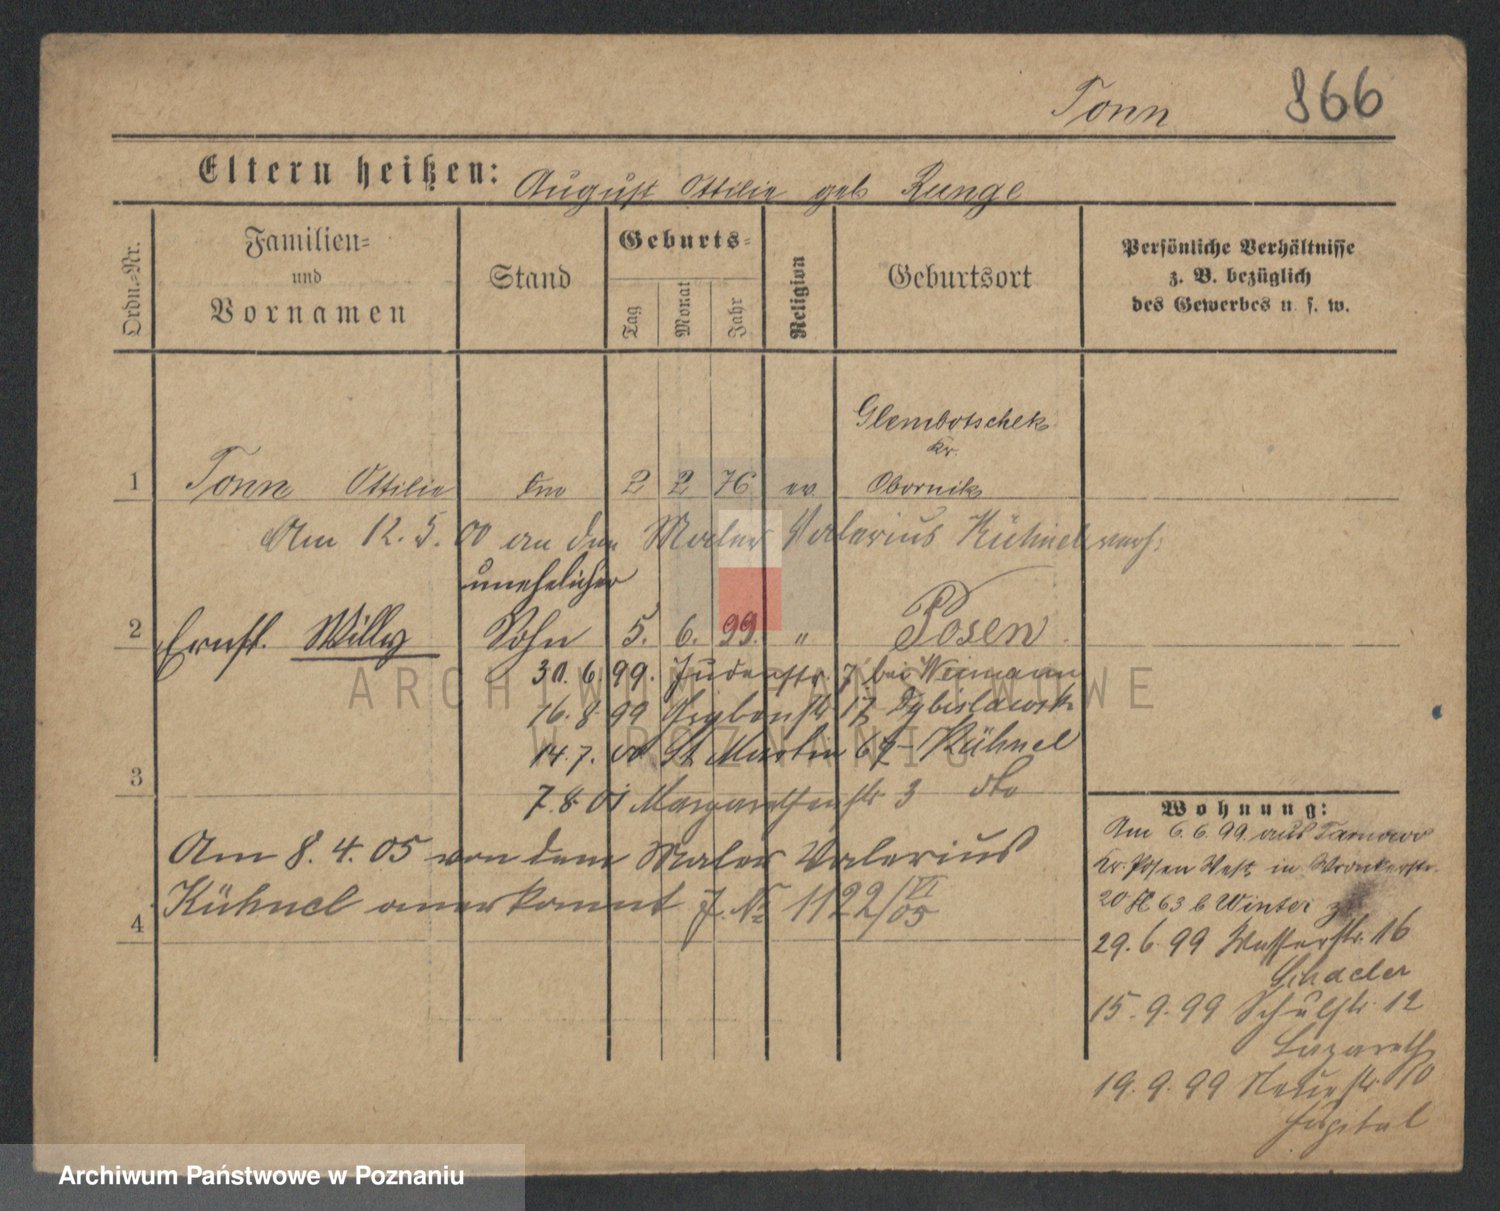 Tonn 866
Eltern heißen: August Ottilie geb Runge
Ordn.-Nr.
Familien-
und
Vornamen
Stand
Geburts-
Tag
Monat
Jahr
Religion
Geburtsort
Persönliche Verhältnisse
z. B. bezüglich
des Gewerbes u. s. w.
Glembotschek
Kr.
1 Tonn Ottilie 2 2 76 ev Obornik
Am 12.5.00 an den Maler Valerius Kühnel verh.
unehelicher
2 Ernst Willy Sohn 5. 6. 99. " Posen
30.6.99. Judenstr. 7 bei Weimann
16.8.99 17
14.7.00 St Martin 67 Kühnel
3
7.8.01 Margarethenstr 3 dto
Am 8.4.05 von dem Maler Valerius
4 Kühnel anerkannt J. No 1122/VI 05
Wohnung:
Am 6.6.99 aus Tarnowo
Kr. Posen West in Wronkerstr.
20 63 b Winter
29.6.99 Wasserstr. 16
15.9.99 Schulstr. 12
Lazareth
19.9.99 Neuestr. 10
Hospital
ARCHIWUM PAŃSTWOWE
W POZNANIU
Archiwum Państwowe w Poznaniu